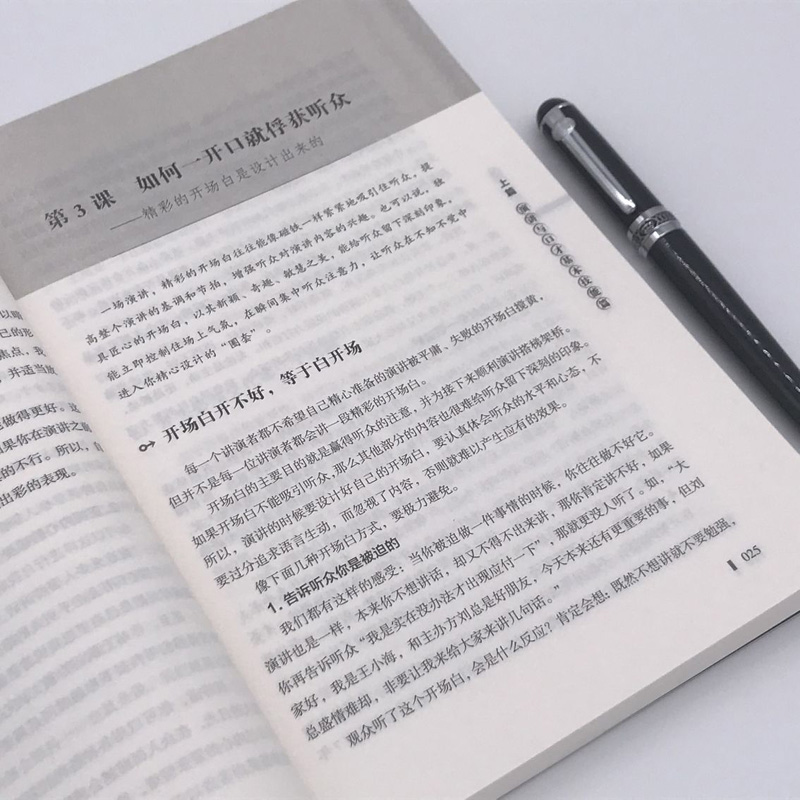 以
己的形
焦点，我
，并适当放
做得更好。这
果你在演讲之
的不行。所以，
出彩的表现。
第3课 如何一开口就俘获听众
——精彩的开场白是设计出来的
一场演讲，精彩的开场白往往能像磁铁一样紧紧地吸引住听众，提
高整个演讲的基调和节拍，增强听众对演讲内容的兴趣。也可以说，独
具匠心的开场白，以其新颖、奇趣、敏慧之美，能给听众留下深刻印象，
能立即控制住场上气氛，在瞬间集中听众注意力，让听众在不知不觉中
进入你精心设计的“圈套”。
开场白开不好，等于白开场
每一个讲演者都不希望自己精心准备的演讲被平庸、失败的开场白搅黄，
但并不是每一位讲演者都会讲一段精彩的开场白。
开场白的主要目的就是赢得听众的注意，并为接下来顺利演讲搭梯架桥。
如果开场白不能吸引听众，那么其他部分的内容也很难给听众留下深刻的印象。
所以，演讲的时候要设计好自己的开场白，要认真体会听众的水平和心态，不
要过分追求语言生动，而忽视了内容，否则就难以产生应有的效果。
像下面几种开场白方式，要极力避免。
1. 告诉听众你是被迫的
我们都有这样的感受：当你被迫做一件事情的时候，你往往做不好它。
演讲也是一样，本来你不想讲话，却又不得不出来讲，那你肯定讲不好，如果
你再告诉听众“我是实在没办法才出现应付一下”，那就更没人听了。如，“大
家好，我是王小海，和主办方刘总是好朋友，今天本来还有更重要的事，但刘
总盛情难却，非要让我来给大家来讲几句话。”
观众听了这个开场白，会是什么反应？肯定会想：既然不想讲就不要勉强，
上篇 演讲与口才基本技能篇
025